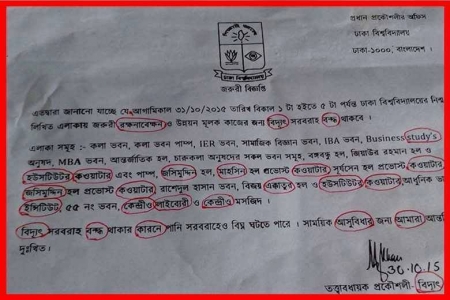 প্রধান প্রকৌশলীর অফিস
ঢাকা বিশ্ববিদ্যালয়
ঢাকা-১০০০, বাংলাদেশ ।
জরুরী বিজ্ঞপ্তি
এতদ্বারা জানানো যাচ্ছে যে আগামিকাল ৩১/১০/২০১৫ তারিখ বিকাল ১ টা হইতে ৫ টা পর্যন্ত ঢাকা বিশ্ববিদ্যালয়ের নিম্ন
লিখিত এলাকায় জরুরী রক্ষনাবেক্ষন ও উন্নয়ন মূলক কাজের জন্য বিদ্যুৎ সরবরাহ বন্ধ থাকবে ।
এলাকা সমূহ :- কলা ভবন, কলা ভবন পাম্প, IER ভবন, সামাজিক বিজ্ঞান ভবন, IBA ভবন, Business study's
অনুষদ, MBA ভবন, আন্তর্জাতিক হল, চারুকলা অনুষদের সকল ভবন সমূহ, বঙ্গবন্ধু হল, জিয়াউর রহমান হল ও
ইউসটিউটর কওয়াটার এবং পাম্প, জসিমুদ্দিন হল, মাহসিন হল প্রভোস্ট কওয়াটার, সূর্যসেন হল প্রভোস্ট কওয়াটার,
জসিমুদ্দিন হল প্রভোস্ট কওয়াটার, রাশেদুল হাসান ভবন, বিজয় একাত্তুর হল ও ইউসটিউটর কওয়াটার, আধুনিক ভাষা
ইন্সটিটিউট, ৫৫ নং ভবন, কেন্দ্রীও লাইবেরী ও কেন্দ্রীও মসজিদ ।
বিদ্যুৎ সরবরাহ বন্ধ থাকার কারনে পানি সরবরাহেও বিঘ্ন ঘটতে পারে । সাময়িক আসুবিধার জন্য আমারা
দুঃখিত।
30.10.15
তত্ত্বাবধায়ক প্রকৌশলী- বিদ্যুৎ